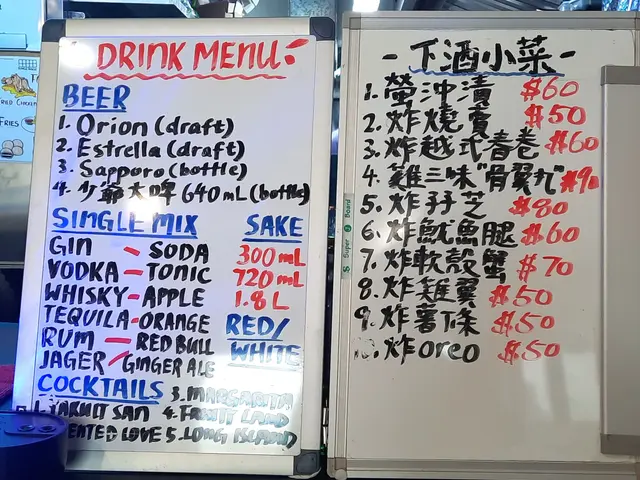 DRINK MENU:
BEER
1. Orion (draft)
2. Estrella (draft)
3. Sapporo (bottle)
4. 少爺大啤 640mL (bottle)
SINGLE MIX
GIN - SODA
VODKA - TONIC
WHISKY - APPLE
TEQUILA - ORANGE
RUM - RED BULL
JAGER / GINGER ALE
SAKE
300mL
720mL
1.8L
RED/
WHITE
COCKTAILS 3. MARGARITA
1. YAKULT SAN 4. FRUIT LAND
ENTED LOVE 5. LONG ISLAND
- 下酒小菜 -
1. 螢沖漬 $60
2. 炸燒賣 $50
3. 炸越式春卷 $60
4. 雞三味"骨翼丸" $90
5. 炸孖芝 $80
6. 炸魷魚腿 $60
7. 炸軟殼蟹 $70
8. 炸雞翼 $50
9. 炸薯條 $50
10. 炸oreo $50
Super Board
FRIED CHICKEN
FRIES